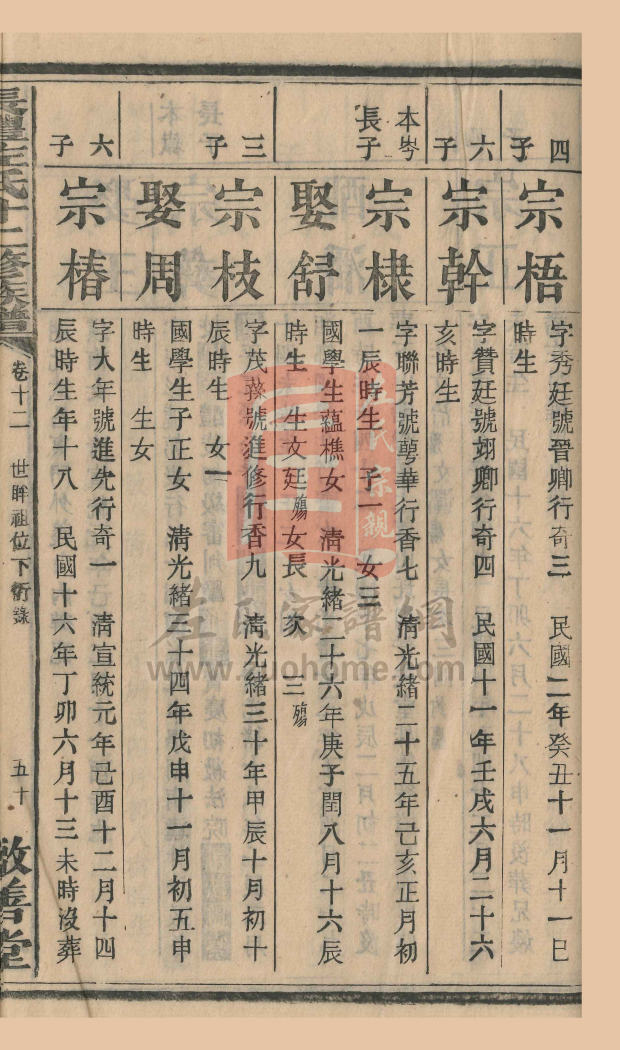 四子
宗梧
字秀廷號晉卿行奇三　民國二年癸丑十一月十一巳
時生
六子
宗幹
字贊廷號翊卿行奇四　民國十一年壬戌六月二十六
亥時生
本岑長子
宗棣
字聯芳號萼華行香七　清光緒二十五年己亥正月初
一辰時生　子一　女三
娶舒
國學生蘊樵女　清光緒二十六年庚子閏八月十六辰
時生　生文廷殤女長　次　三殤
三子
宗枝
字茂蓀號進修行香九　清光緒三十年甲辰十月初十
辰時生　女一
娶周
國學生子正女　清光緒三十四年戊申十一月初五申
時生　生女
六子
宗椿
字大年號進先行奇一　清宣統元年己酉十二月十四
辰時生年十八　民國十六年丁卯六月十三未時沒葬
長澧左氏十二修族譜　卷十二　世畔祖位下衍錄　五十　敬善堂
左氏宗親
左氏家譜網
www.zuohome.com